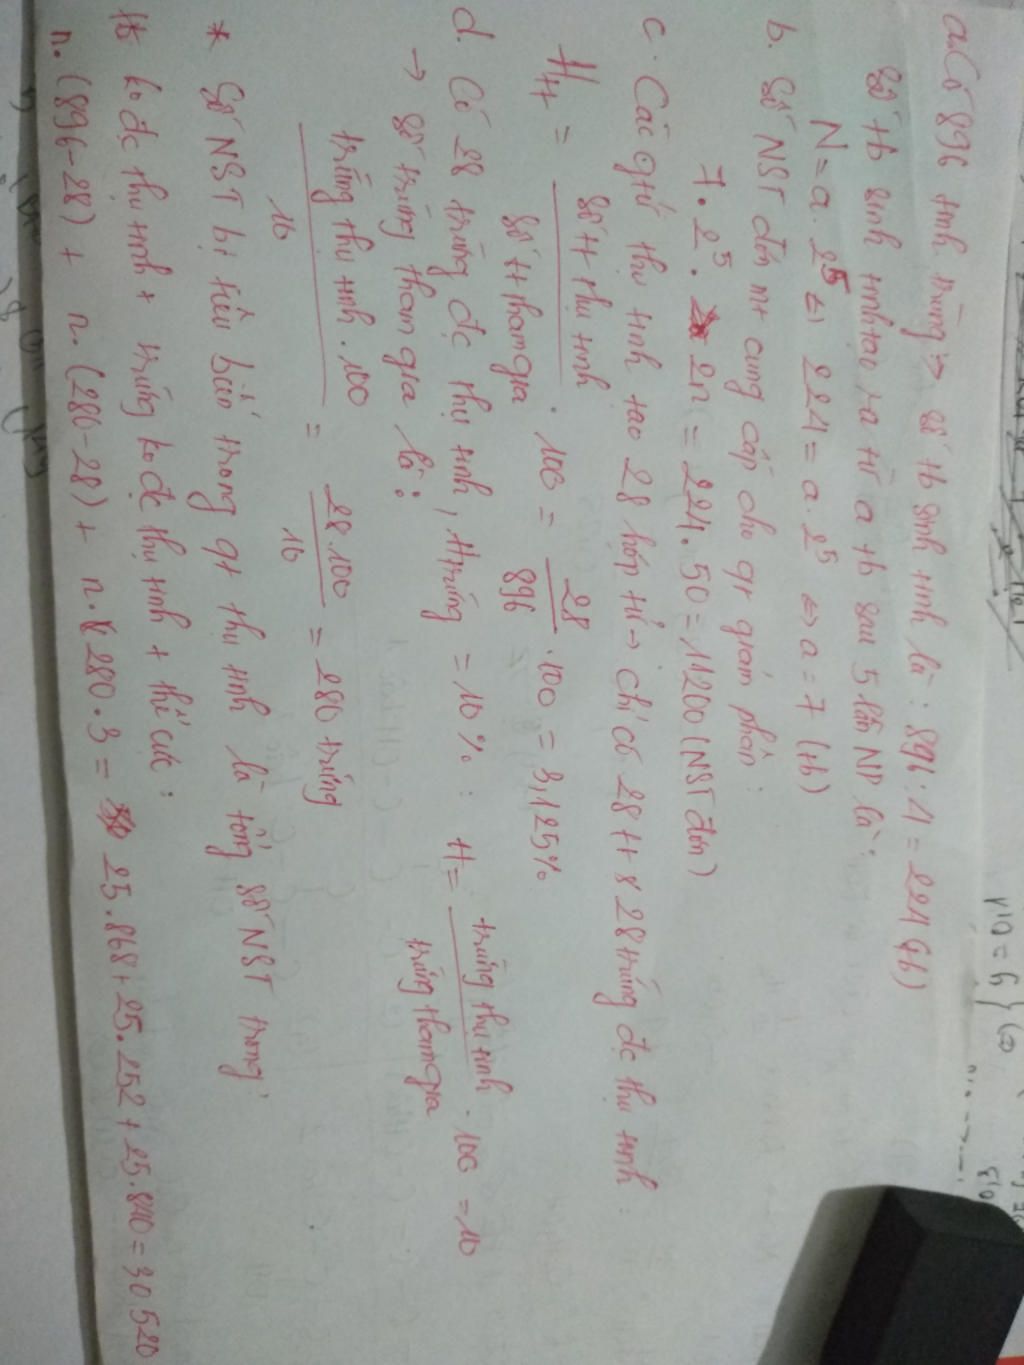 a. Có 896 tinh trùng => số tb sinh tinh là : 896 : 4 = 224 (tb)
số tb sinh tinh tạo ra từ a tb sau 5 lần NP là :
N = a . 2⁵ <=> 224 = a . 2⁵ <=> a = 7 (tb)
b. Số NST đơn mt cung cấp cho qt giảm phân :
7 . 2⁵ . 2n = 224 . 50 = 11200 (NST đơn)
c. Các gtử thụ tinh tạo 28 hợp tử -> chỉ có 28 tt & 28 trứng đc thụ tinh
Htt = số tt thụ tinh / số tt tham gia . 100 = 28 / 896 . 100 = 3,125%
d. Có 28 trứng đc thụ tinh, Htrứng = 10% : H = trứng thụ tinh / trứng tham gia . 100 = 10
-> số trứng tham gia là :
trứng thụ tinh . 100 / 10 = 28 . 100 / 10 = 280 trứng
* Số NST bị tiêu biến trong qt thụ tinh là tổng số NST trong
tb ko đc thụ tinh + trứng ko đc thụ tinh + thể cực :
n . (896 - 28) + n . (280 - 28) + n . 280 . 3 = 25 . 868 + 25 . 252 + 25 . 840 = 30520